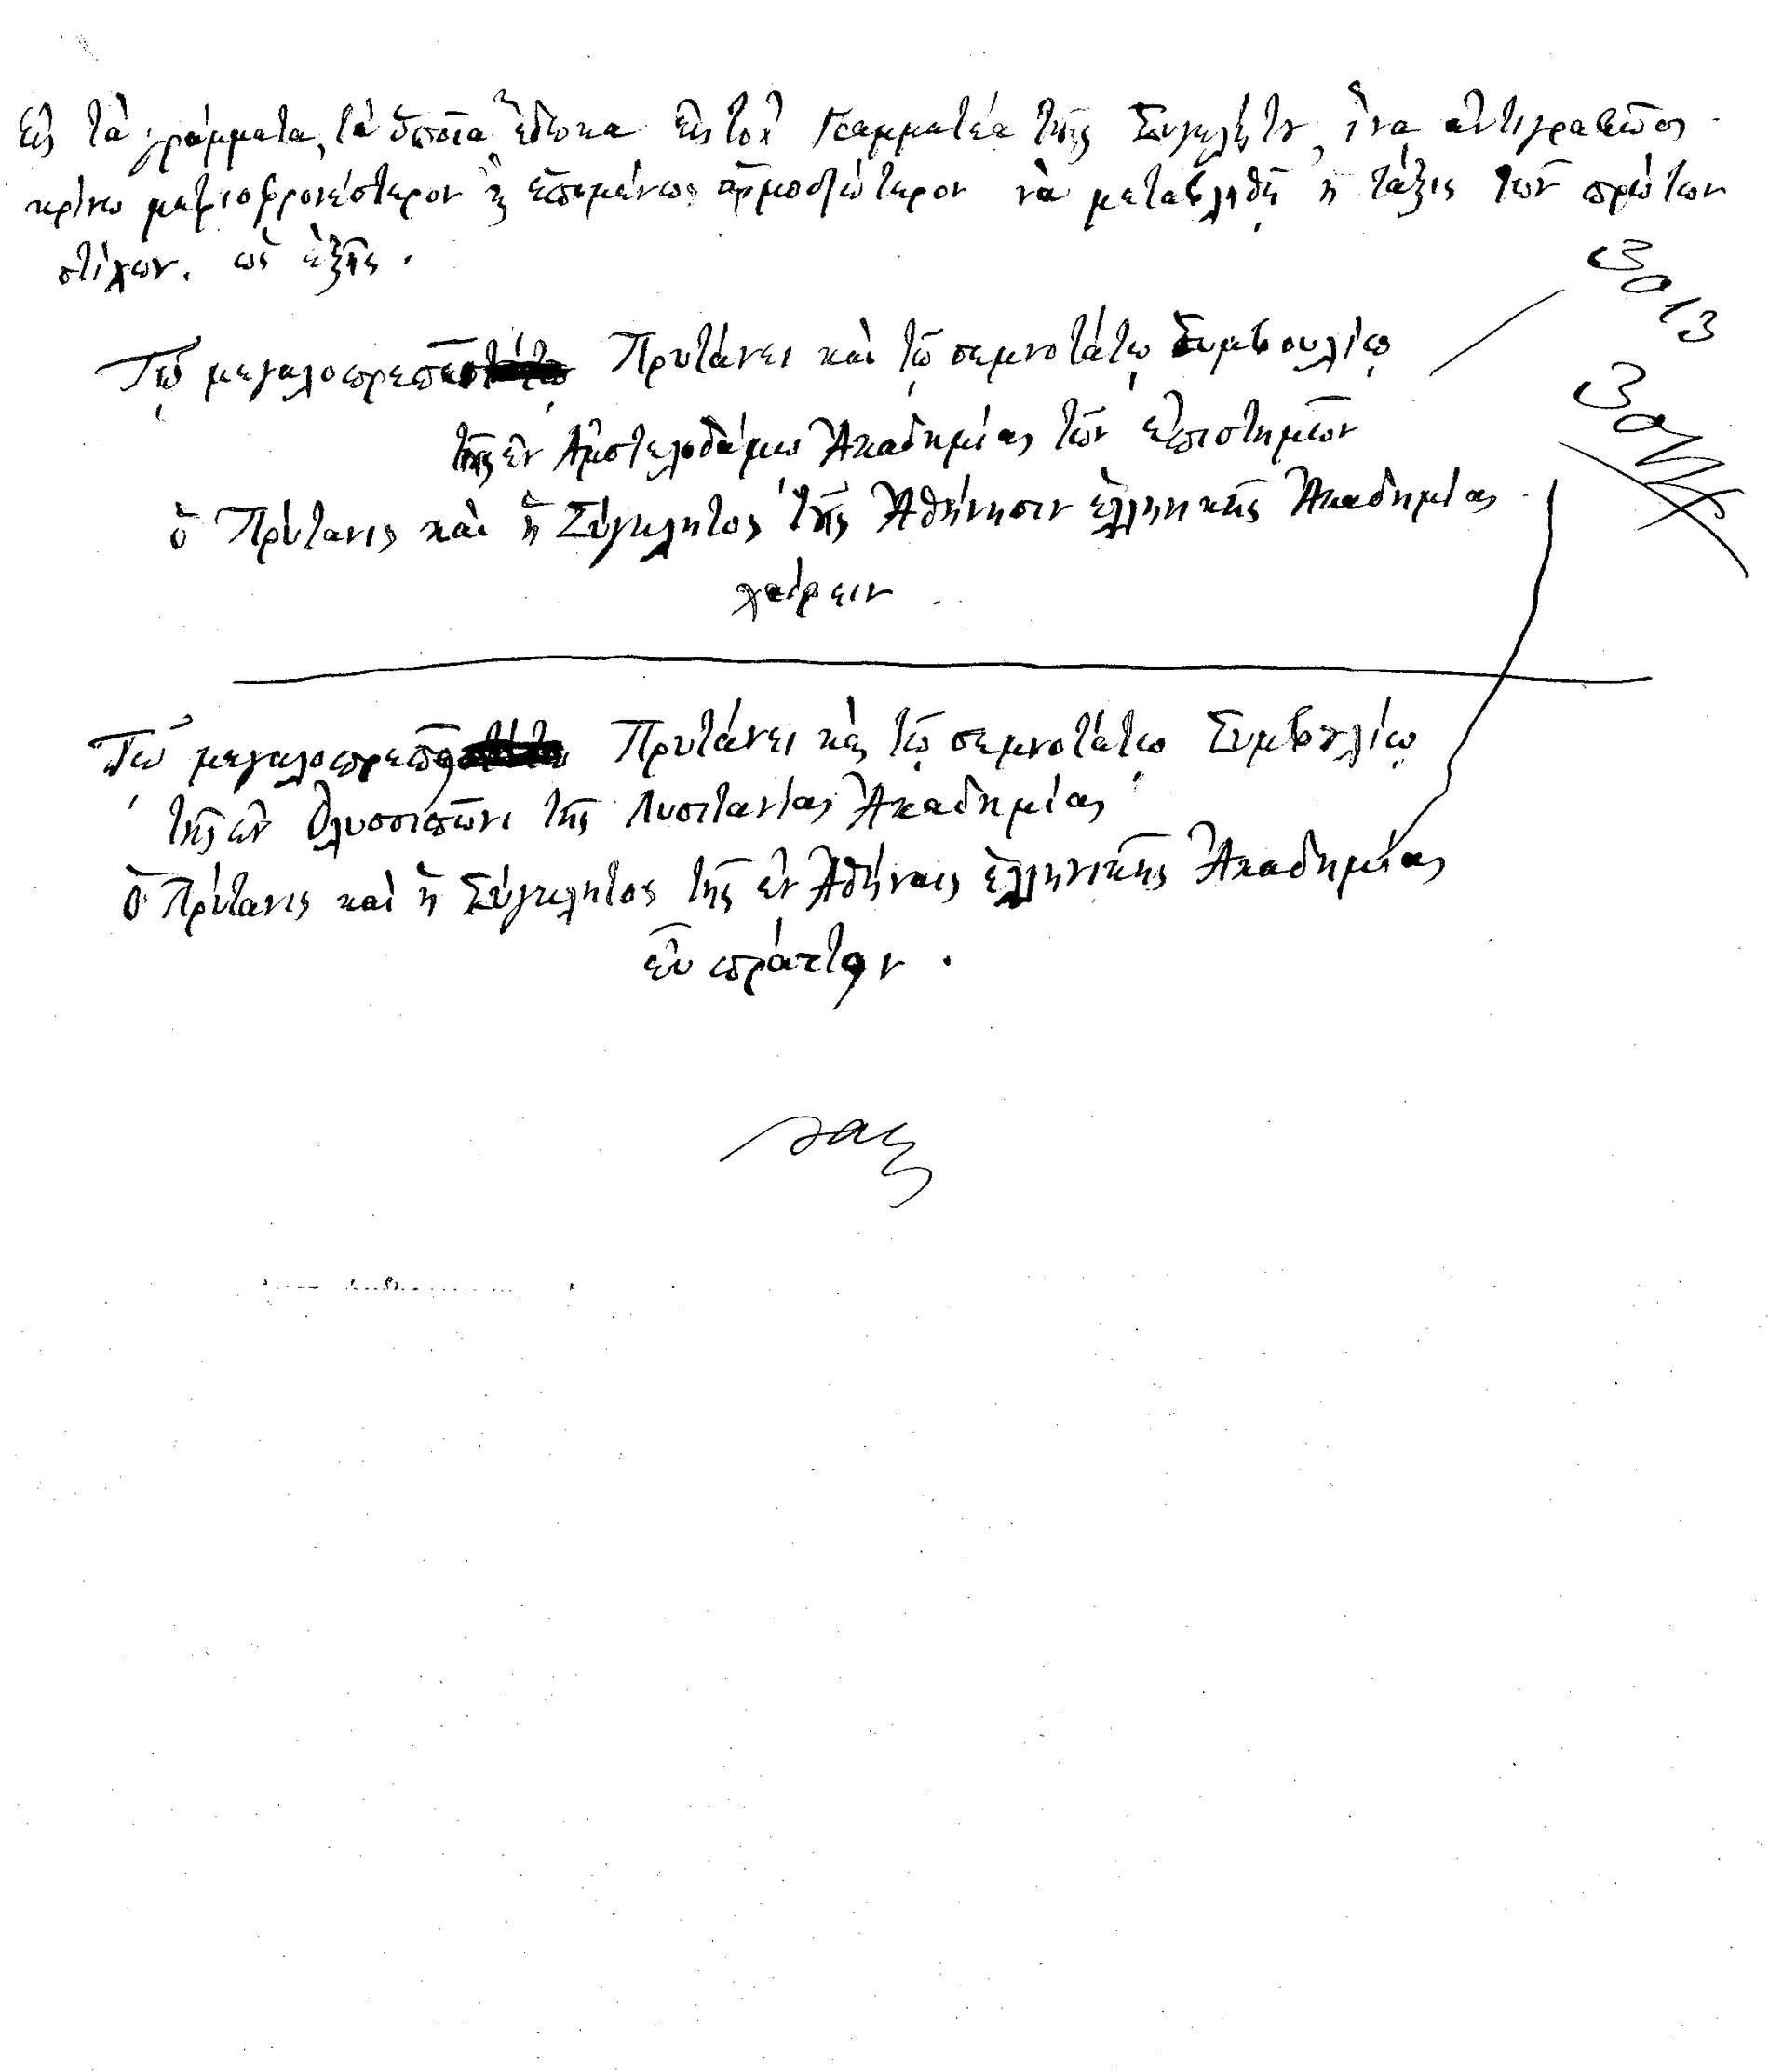 Εἰς τὰ γράμματα, τὰ ὁποῖα ἔδωκα εἰς τὸν Γραμματέα τῆς Συγκλήτου, ἵνα ἀντιγραφῶσι
κρίνω μετριοφρονέστερον κ̀ ἑπομένως ἁρμοδιώτερον νὰ μεταβληθῇ ἡ τάξις τῶν πρώτων
στίχων. ὡς ἑξῆς.
Τῷ μεγαλοπρεπεῖ Πρυτάνει καὶ τῷ σεμνοτάτῳ Συμβουλίῳ
τῆς ἐν Ἀμστελοδάμῳ Ἀκαδημίας τῶν ἐπιστημῶν
ὁ Πρύτανις καὶ ἡ Σύγκλητος τῆς Ἀθήνησιν ἑλληνικῆς Ἀκαδημίας
χαίρειν.
Τῷ μεγαλοπρεπεῖ Πρυτάνει κὲ τῷ σεμνοτάτῳ Συμβουλίῳ
τῆς ἐν Ὀλυσσιπῶνι τῆς Λυσιτανίας Ἀκαδημίας
ὁ Πρύτανις καὶ ἡ Σύγκλητος τῆς ἐν Ἀθήναις ἑλληνικῆς Ἀκαδημίας
εὖ πράττειν.